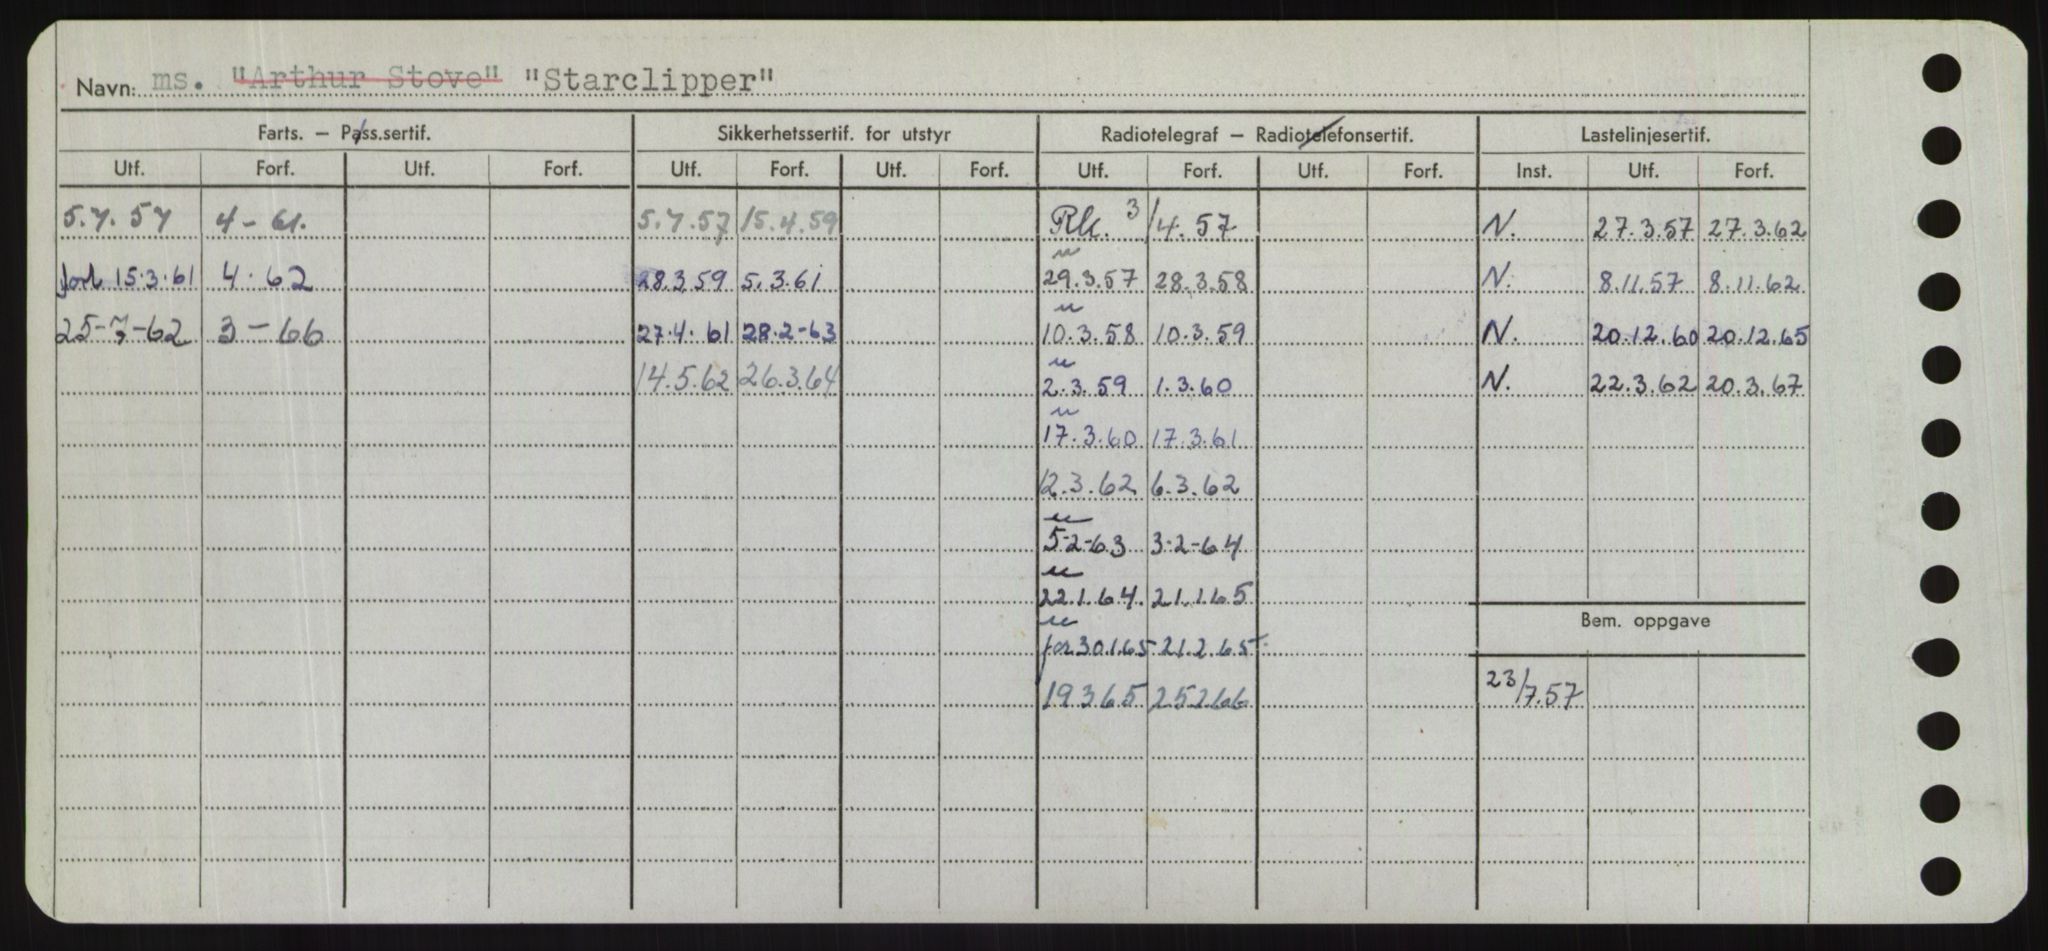 Navn: ms. "Arthur Stove" "Starclipper"
Farts. — Pass.sertif. Sikkerhetssertif. for utstyr Radiotelegraf — Radiotelefonsertif. Lastelinjesertif.
Utf. Forf. Utf. Forf. Utf. Forf. Utf. Forf. Utf. Forf. Utf. Forf. Inst. Utf. Forf.
5.7.57 4-61. 5.7.57 15.4.59 Rk. 3/4.57 N. 27.3.57 27.3.62
15.3.61 4.62 28.3.59 5.3.61 29.3.57 28.3.58 N. 8.11.57 8.11.62
25-7-62 3-66 27.4.61 28.2-63 10.3.58 10.3.59 N. 20.12.60 20.12.65
14.5.62 26.3.64 2.3.59 1.3.60 N. 22.3.62 20.3.67
17.3.60 17.3.61
12.3.62 6.3.62
5-2-63 3-2-64
22.1.64. 21.1.65
Bem. oppgave
for 30.1.65 21.2.65
19365 25266 23/7.57